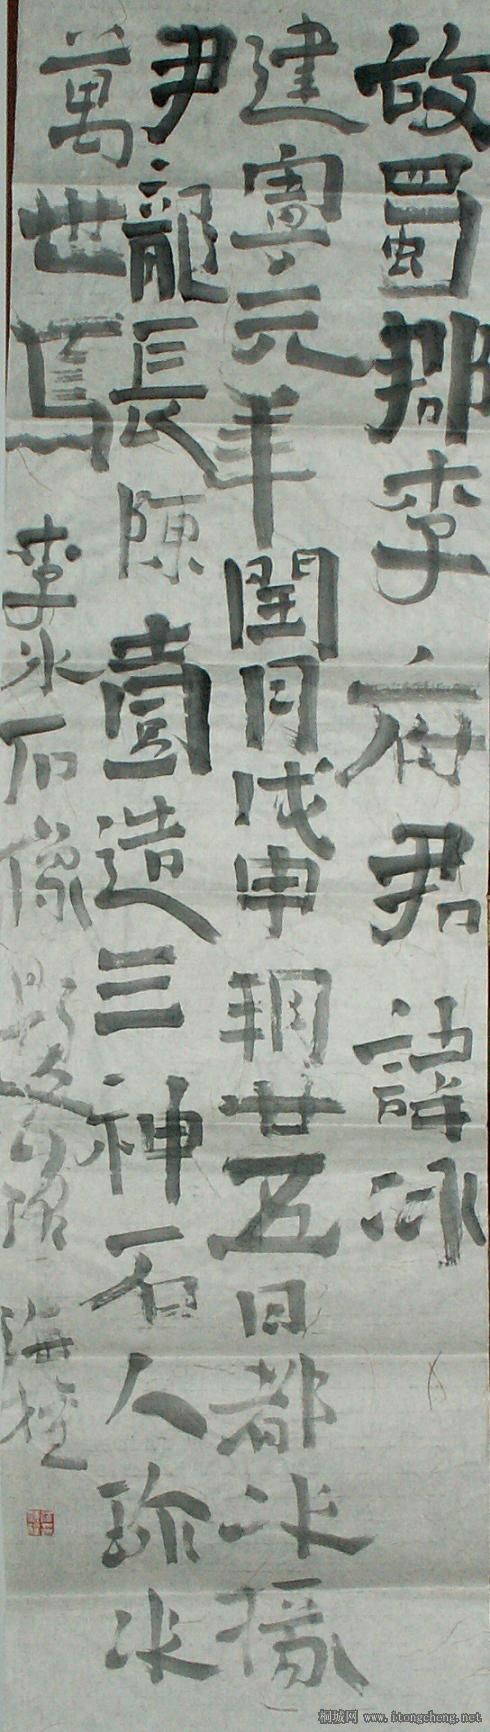 故蜀郡李府君諱冰
建寧元年閏月戊申朔廿五日都水掾
尹龍長陳壹造三神石人珍水
萬世焉
李冰石像題 海
桐城网 www.itongcheng.net